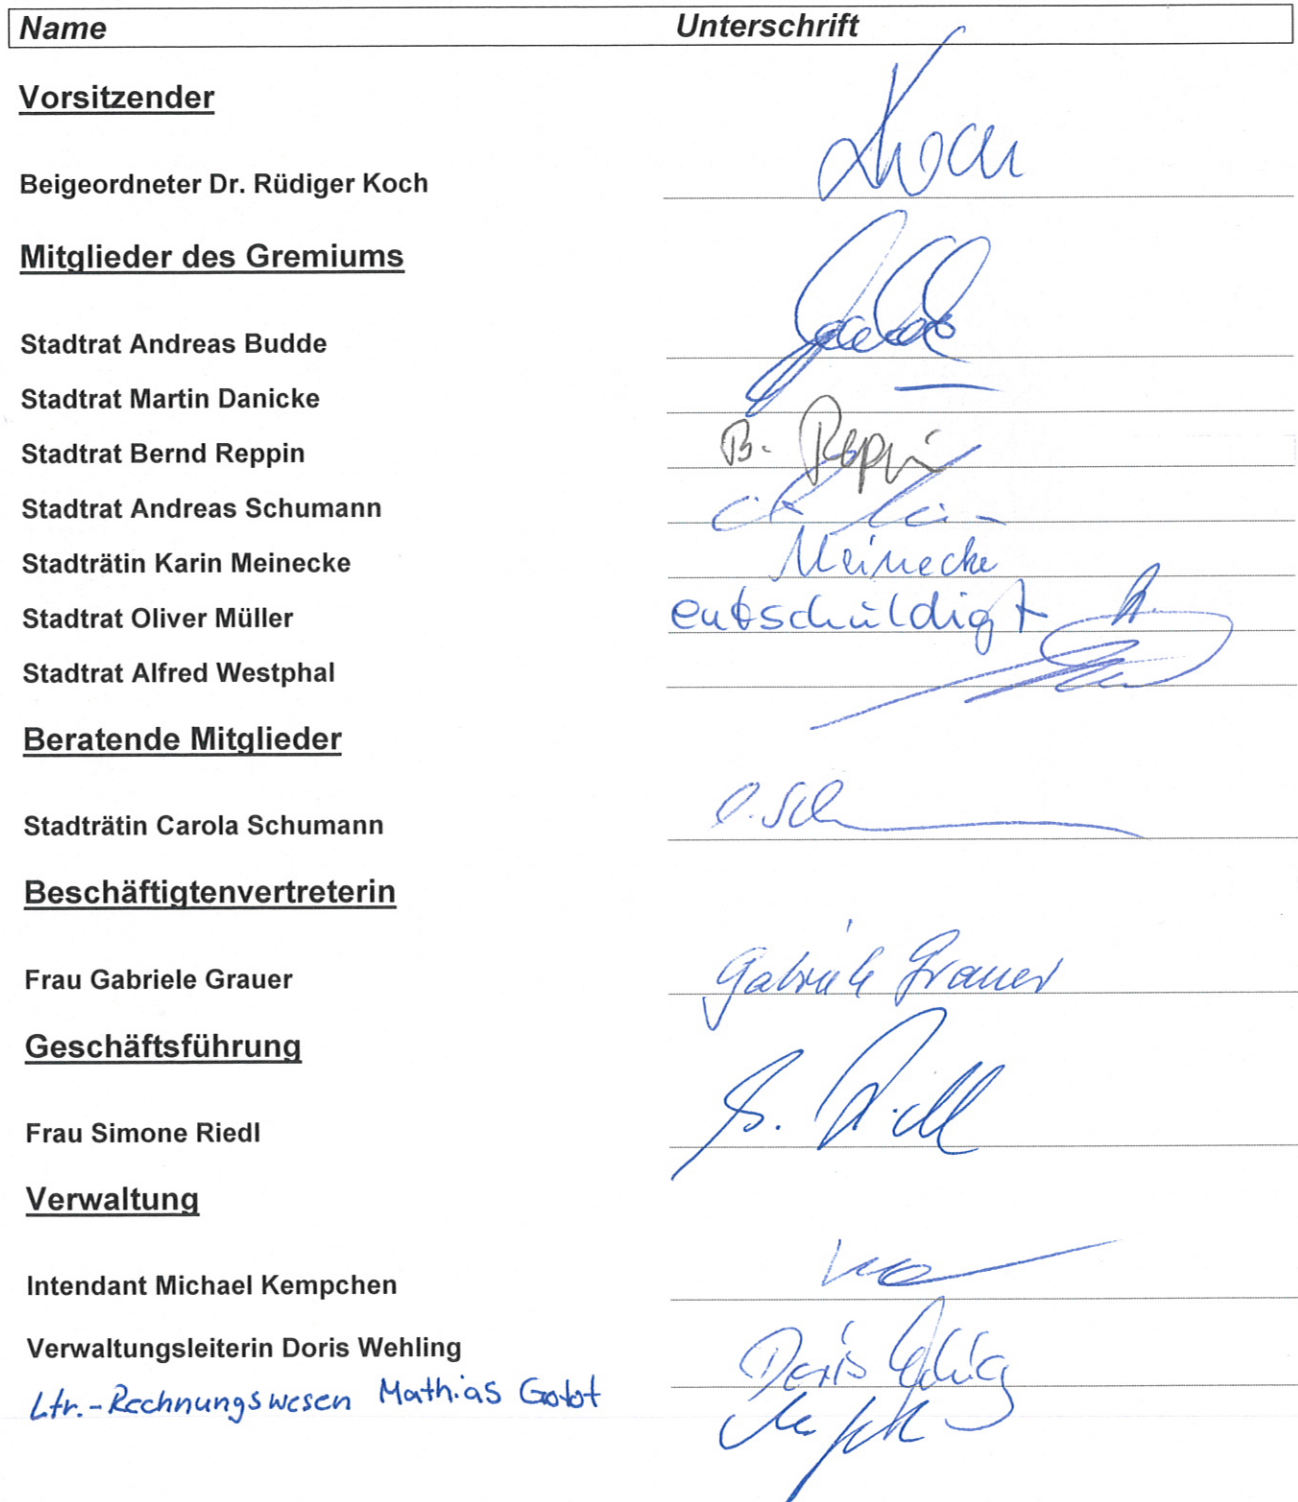 Name Unterschrift
Vorsitzender
Beigeordneter Dr. Rüdiger Koch Koch
Mitglieder des Gremiums
Stadtrat Andreas Budde
Stadtrat Martin Danicke
Stadtrat Bernd Reppin B. Reppin
Stadtrat Andreas Schumann
Stadträtin Karin Meinecke Meinecke
Stadtrat Oliver Müller entschuldigt
Stadtrat Alfred Westphal
Beratende Mitglieder
Stadträtin Carola Schumann
Beschäftigtenvertreterin
Frau Gabriele Grauer Gabriele Grauer
Geschäftsführung
Frau Simone Riedl S. Riedl
Verwaltung
Intendant Michael Kempchen
Verwaltungsleiterin Doris Wehling Doris Wehling
Ltr.-Rechnungswesen Mathias